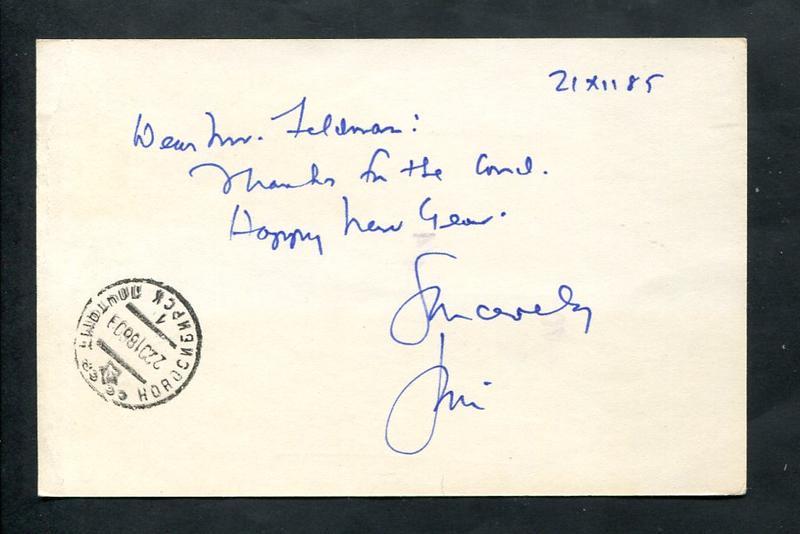 21 XII 85
Dear Mr. Feldman:
Thanks for the card.
Happy New Year.
Sincerely
Jim
НОВОСИБИРСК ПОЧТАМТ
1
СССР